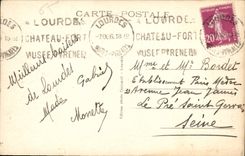 CARTE POSTALE
LOURDES
CHATEAU-FORT
MUSÉE PYRENEEN
LOURDES
CHATEAU-FORT
MUSÉE PYRENEEN
20
Meilleurs
de Lourdes
Gabriel
Made
Monette
Mme et Mr Bordet
Établissement
Avenue Jean Jaurès
Le Pré Saint Gervais
Seine